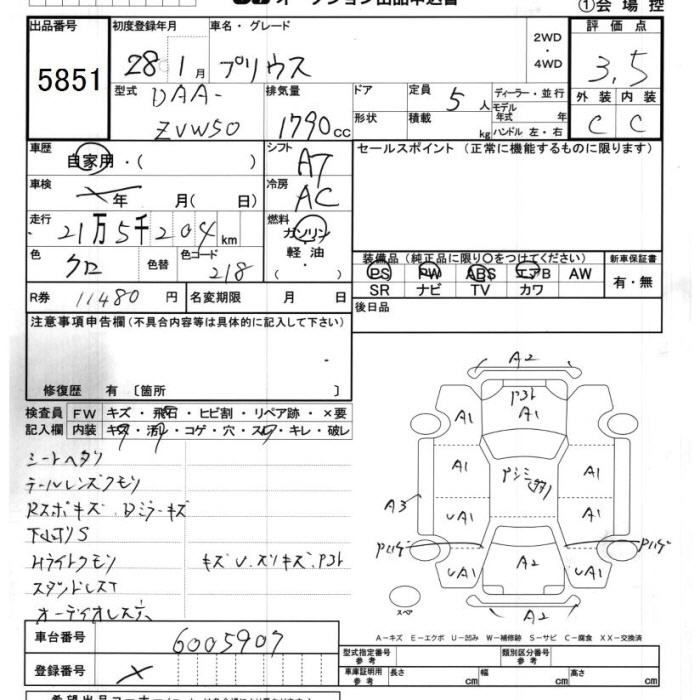 オークション出品申込書
①会場控
出品番号 5851
初度登録年月 28 1月
車名・グレード プリウス
2WD
・
4WD
評価点 3.5
型式 DAA-
ZVW50
排気量 1790cc
ドア
形状
定員 5人
積載 kg
ディーラー・並行
モデル年式 年
ハンドル 左・右
外装 内装
C C
車歴 自家用・( )
シフト AT
セールスポイント (正常に機能するものに限ります)
車検 年 月( 日)
冷房 AC
走行 21万5千204km
燃料 ガソリン
軽油
・( )
色 クロ 色替 色コード 218
装備品(純正品に限り○をつけてください)
PS PW ABS エアB AW
SR ナビ TV カワ
新車保証書
有・無
R券 11480円 名変期限 月 日
後日品
注意事項申告欄(不具合内容等は具体的に記入して下さい)
修復歴 有〔箇所 〕
検査員 FW キズ・飛石・ヒビ割・リペア跡・×要
記入欄 内装 キズ・汚れ・コゲ・穴・スレ・キレ・破レ
シートヘタリ
テールレンズクモリ
Rスポキズ、Dミラーキズ
Hライトクモリ
オーディオレス
A2
A1
A1 A1
A1 A1
A3 UA1 A1
A2
UA1 UA1
スペア
A2
A-キズ E-エクボ U-凹み W-補修跡 S-サビ C-腐食 XX-交換済
車台番号 6005907
登録番号 ×
型式指定番号 参考
類別区分番号 参考
車庫証明用 参考 長さ cm 幅 cm 高さ cm